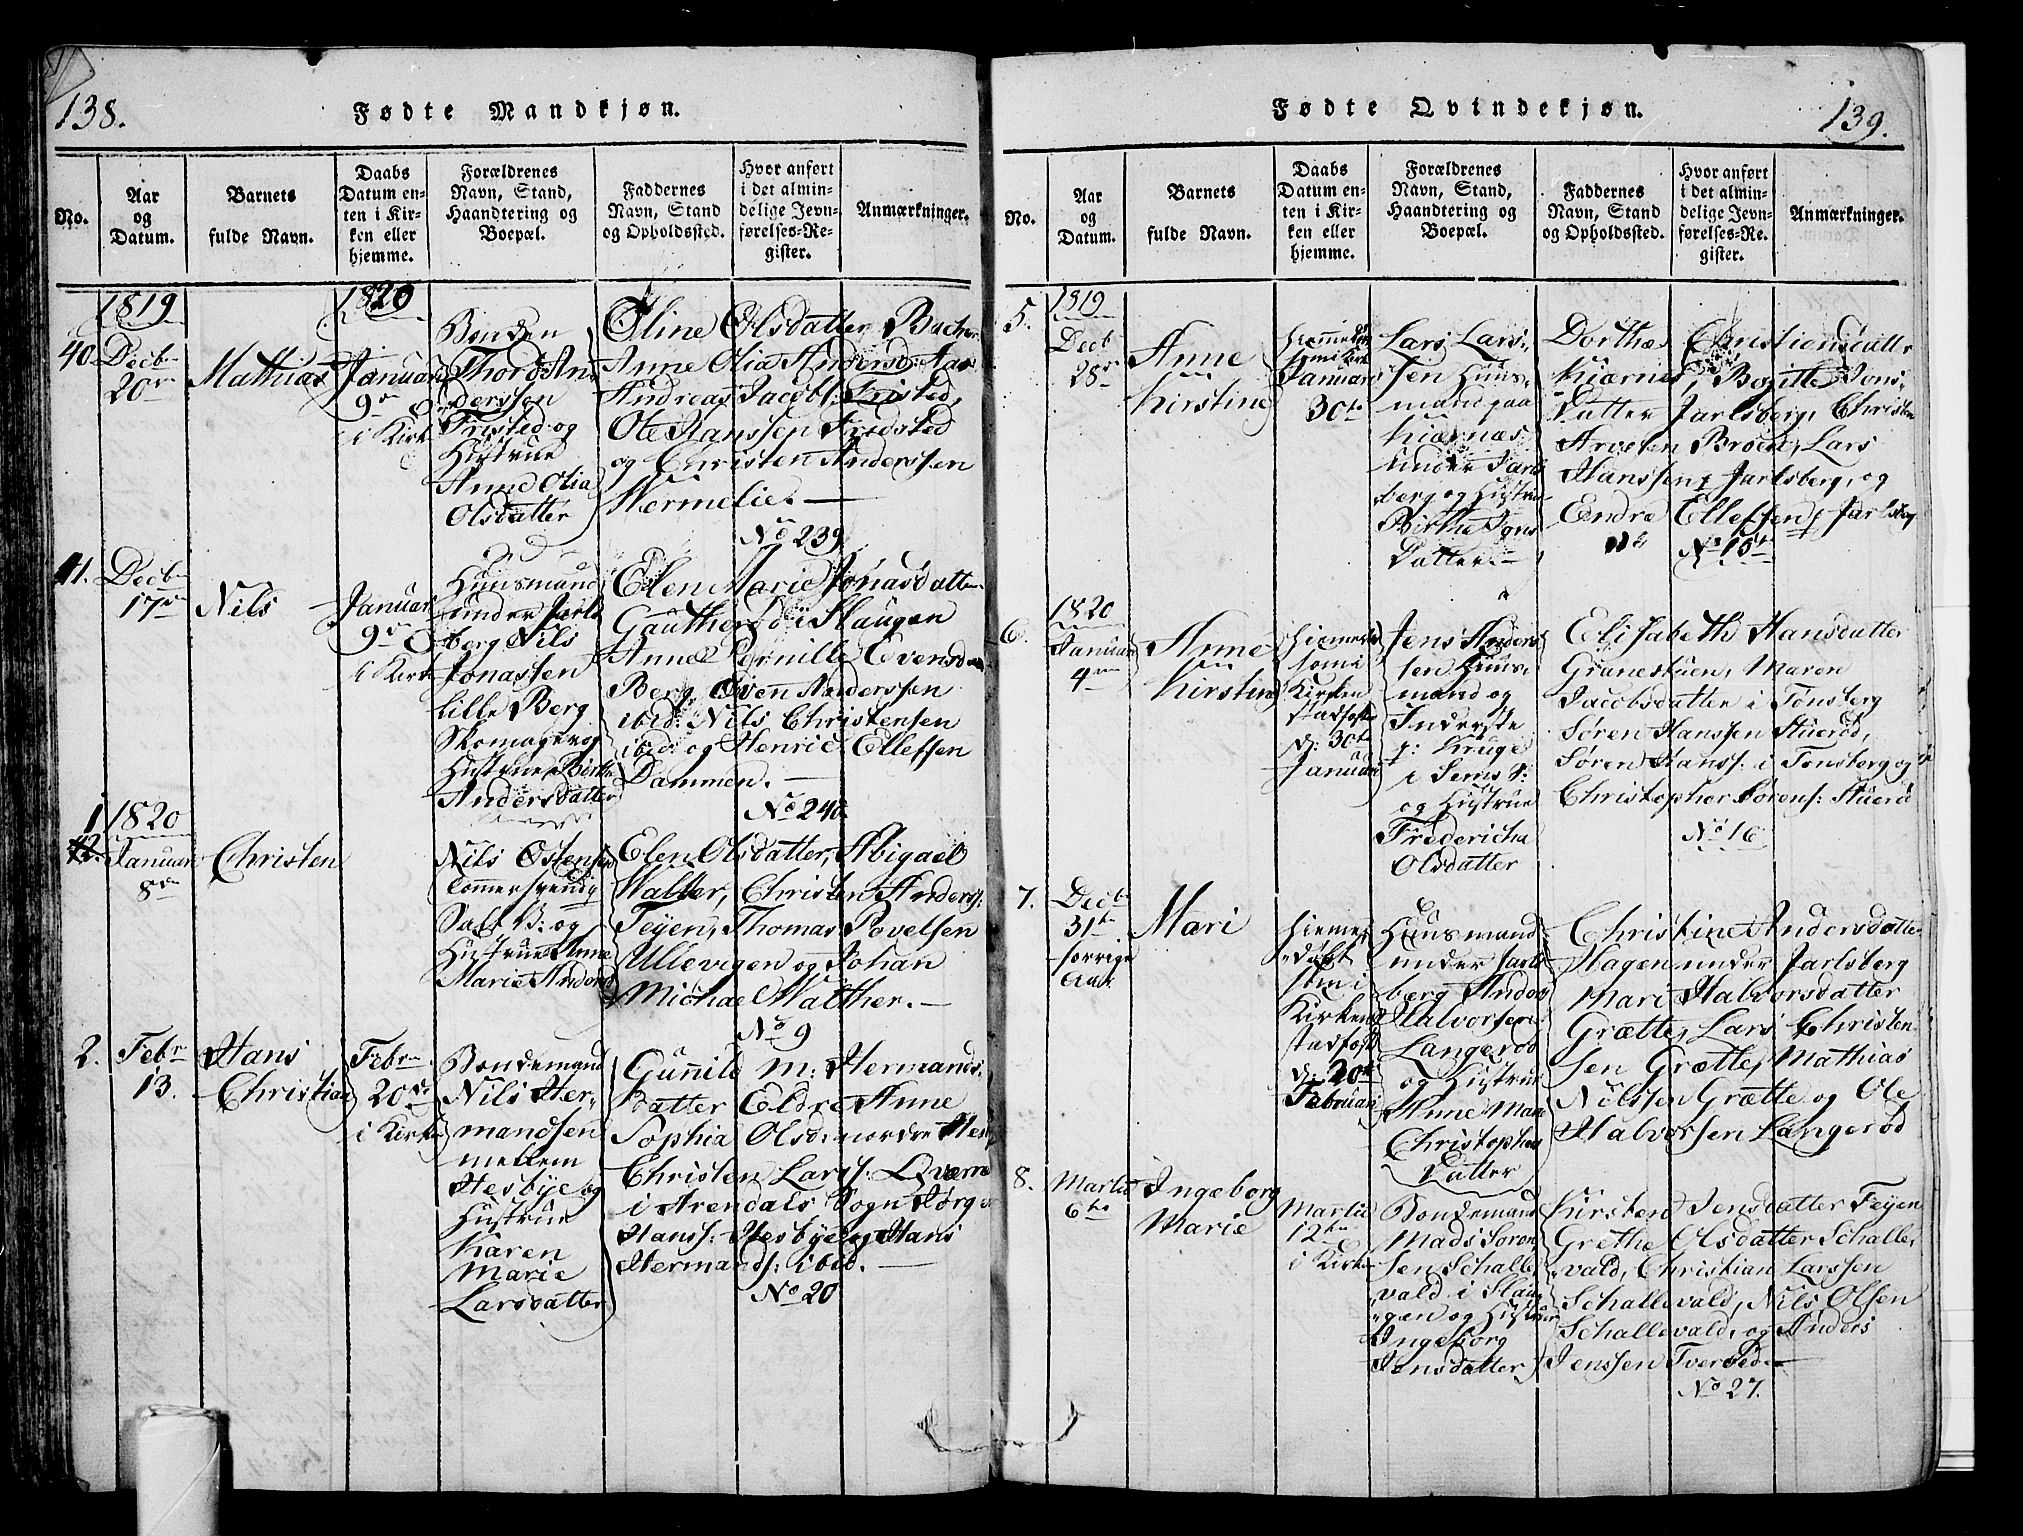 138.
Fødte Mandkjøn.
No.
Aar
og
Datum.
Barnets
fulde Navn.
Daabs
Datum en-
ten i Kir-
ken eller
hjemme.
Forældrenes
Navn, Stand,
Haandtering og
Boepæl.
Faddernes
Navn, Stand
og Opholdssted.
Hvor anført
i det almin-
delige Jevn-
førelses-Re-
gister.
Anmærkninger.
40
1819
Decbr
20de
Mathias
1820
Januari
9de
i Kirk
Bonden
Thord An
derssen
Fristed og
Hustrue
Anne Olia
Olsdatter
Oline Olsdatter
Anne Olia Andersd:
Andreas Jacobs: Fristed,
Ole Hanssen Fredsted
og Christen Anderssen
Wermelie. —
No 239
41.
Decbr
17de
Nils
Januari
9de
i Kirk
Huusmand
under Jarls
berg Nils
Jonassen
lille Berg
Skomager og
Hustrue Berthe
Andersdatter
Elen Marie Jonasdatter
i Slaugen
Anne Pernille Evensd
Berg, Even Anderssen
ibid: Nils Christensen
ibid: og Henric Ellefsen
Dammen. —
No 240
1
42.
1820
Januari
8de
Christen
Nils Ostensen
Tømmersvend
og
Hustrue Anne
Marie
Elen Olsdatter, Abigael
Walter, Christen Anders:
Teyen, Thomas Povelsen
Ullevigen og Johan
Michael Walther. —
No 9
2.
Febr
13.
Hans
Christian
Febr
20de
i Kirke
Bondemand
Nils Her-
mandsen
mellem
Hesbye og
Hustrue
Karen
Marie
Larsdatter
Gunnild M: Hermands
datter Eldre Anne
Sophia Olsd: nordre
Christen Larss:
i Arendals Sogn Jørgen
Hanss: Hesbye og Hans
Hermands: ibid. —
No 20
139.
Fødte Qvindekjøn.
No.
Aar
og
Datum.
Barnets
fulde Navn.
Daabs
Datum en-
ten i Kir-
ken eller
hjemme.
Forældrenes
Navn, Stand,
Haandtering og
Boepæl.
Faddernes
Navn, Stand
og Opholdssted.
Hvor anført
i det almin-
delige Jevn-
førelses-Re-
gister.
Anmærkninger.
5.
1819
Decb
28de
Anne
Kirstine
Januari
30te
Lars Lars-
sen Huus-
mand paa
Kiærnes
under Jarls
berg og Hustrue
Birthe Jons
Datter. —
Dorthe Christiensdatter
Kiærnes, Birgitte Jons-
Datter Jarlsberg, Christen
Arvesen Broen, Lars
Hanssen Jarlsberg, og
Endre Ellefsen Jarlsberg
No 15
6.
1820
Januari
4de
Anne
Kirstine
hiemme
som i
Kirken
stadfæst
d: 30te
Januari
Jens Anders
sen Huus-
mand og
Inderste
p: Kruge
i Sems S:
og Hustrue
Fredericha
Olsdatter
Elisabeth Hansdatter
Granestuen, Maren
Jacobsdatter i Tønsberg
Søren Hanssen Stuerød,
Søren Hanss: i Tønsberg og
Christopher Sørens: Stuerød
No 16
7.
Decbr
31te
forrige
Aar
Mari
hieme
døbt
som i
Kirken
stadfæst
d: 20de
Februari
Huusmand
under Jarls
berg Anders
Halvorsen
Langerød
og Hustrue
Anne Marie
Christophers
Datter
Christine Andersdatter
Hagen under Jarlsberg
Mari Halvorsdatter
Grætte, Lars Christen-
sen Grætte, Mathias
Nilssen Grætte og Ole
Halvorsen Langerød
8.
Martii
6te
Ingeborg
Marie
Martii
12te
i Kirke
Bondemand
Mads Soren-
sen Schalle
vald i Slau-
gen og Hustrue
Ingeborg
Jensdatter
Kirsten Jensdatter Teyen
Grethe Olsdatter Schalle-
vald, Christian Larssen
Schallevald, Nils Olsen
Schallevald, og Anders
Jenssen Tverved. —
No 27.